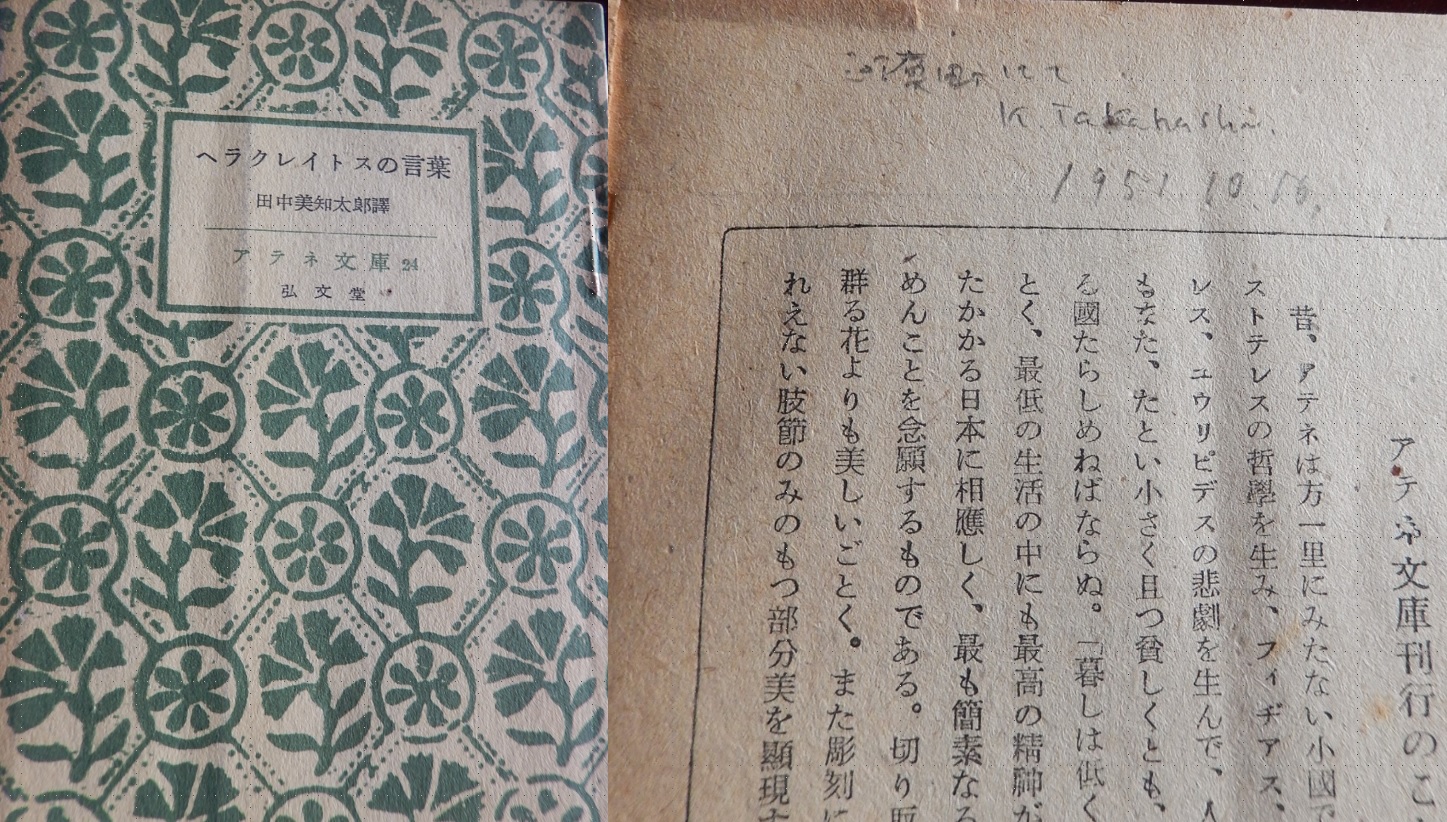 ヘラクレイトスの言葉
田中美知太郎譯
アテネ文庫 24
弘文堂
河原町にて
K. Takahashi.
1951.10.16.
アテネ文庫刊行のこ
昔、アテネは方一里にみたない小國で
ストテレスの哲學を生み、フィヂアス、
レス、ユウリピデスの悲劇を生んで、人
もまた、たとい小さく且つ貧しくとも、
る國たらしめねばならぬ。「暮しは低く
とく、最低の生活の中にも最高の精神が
たかかる日本に相應しく、最も簡素なる
めんことを念願するものである。切り
群る花よりも美しいごとく。また彫刻に
れえない肢節のみのもつ部分美を顯現